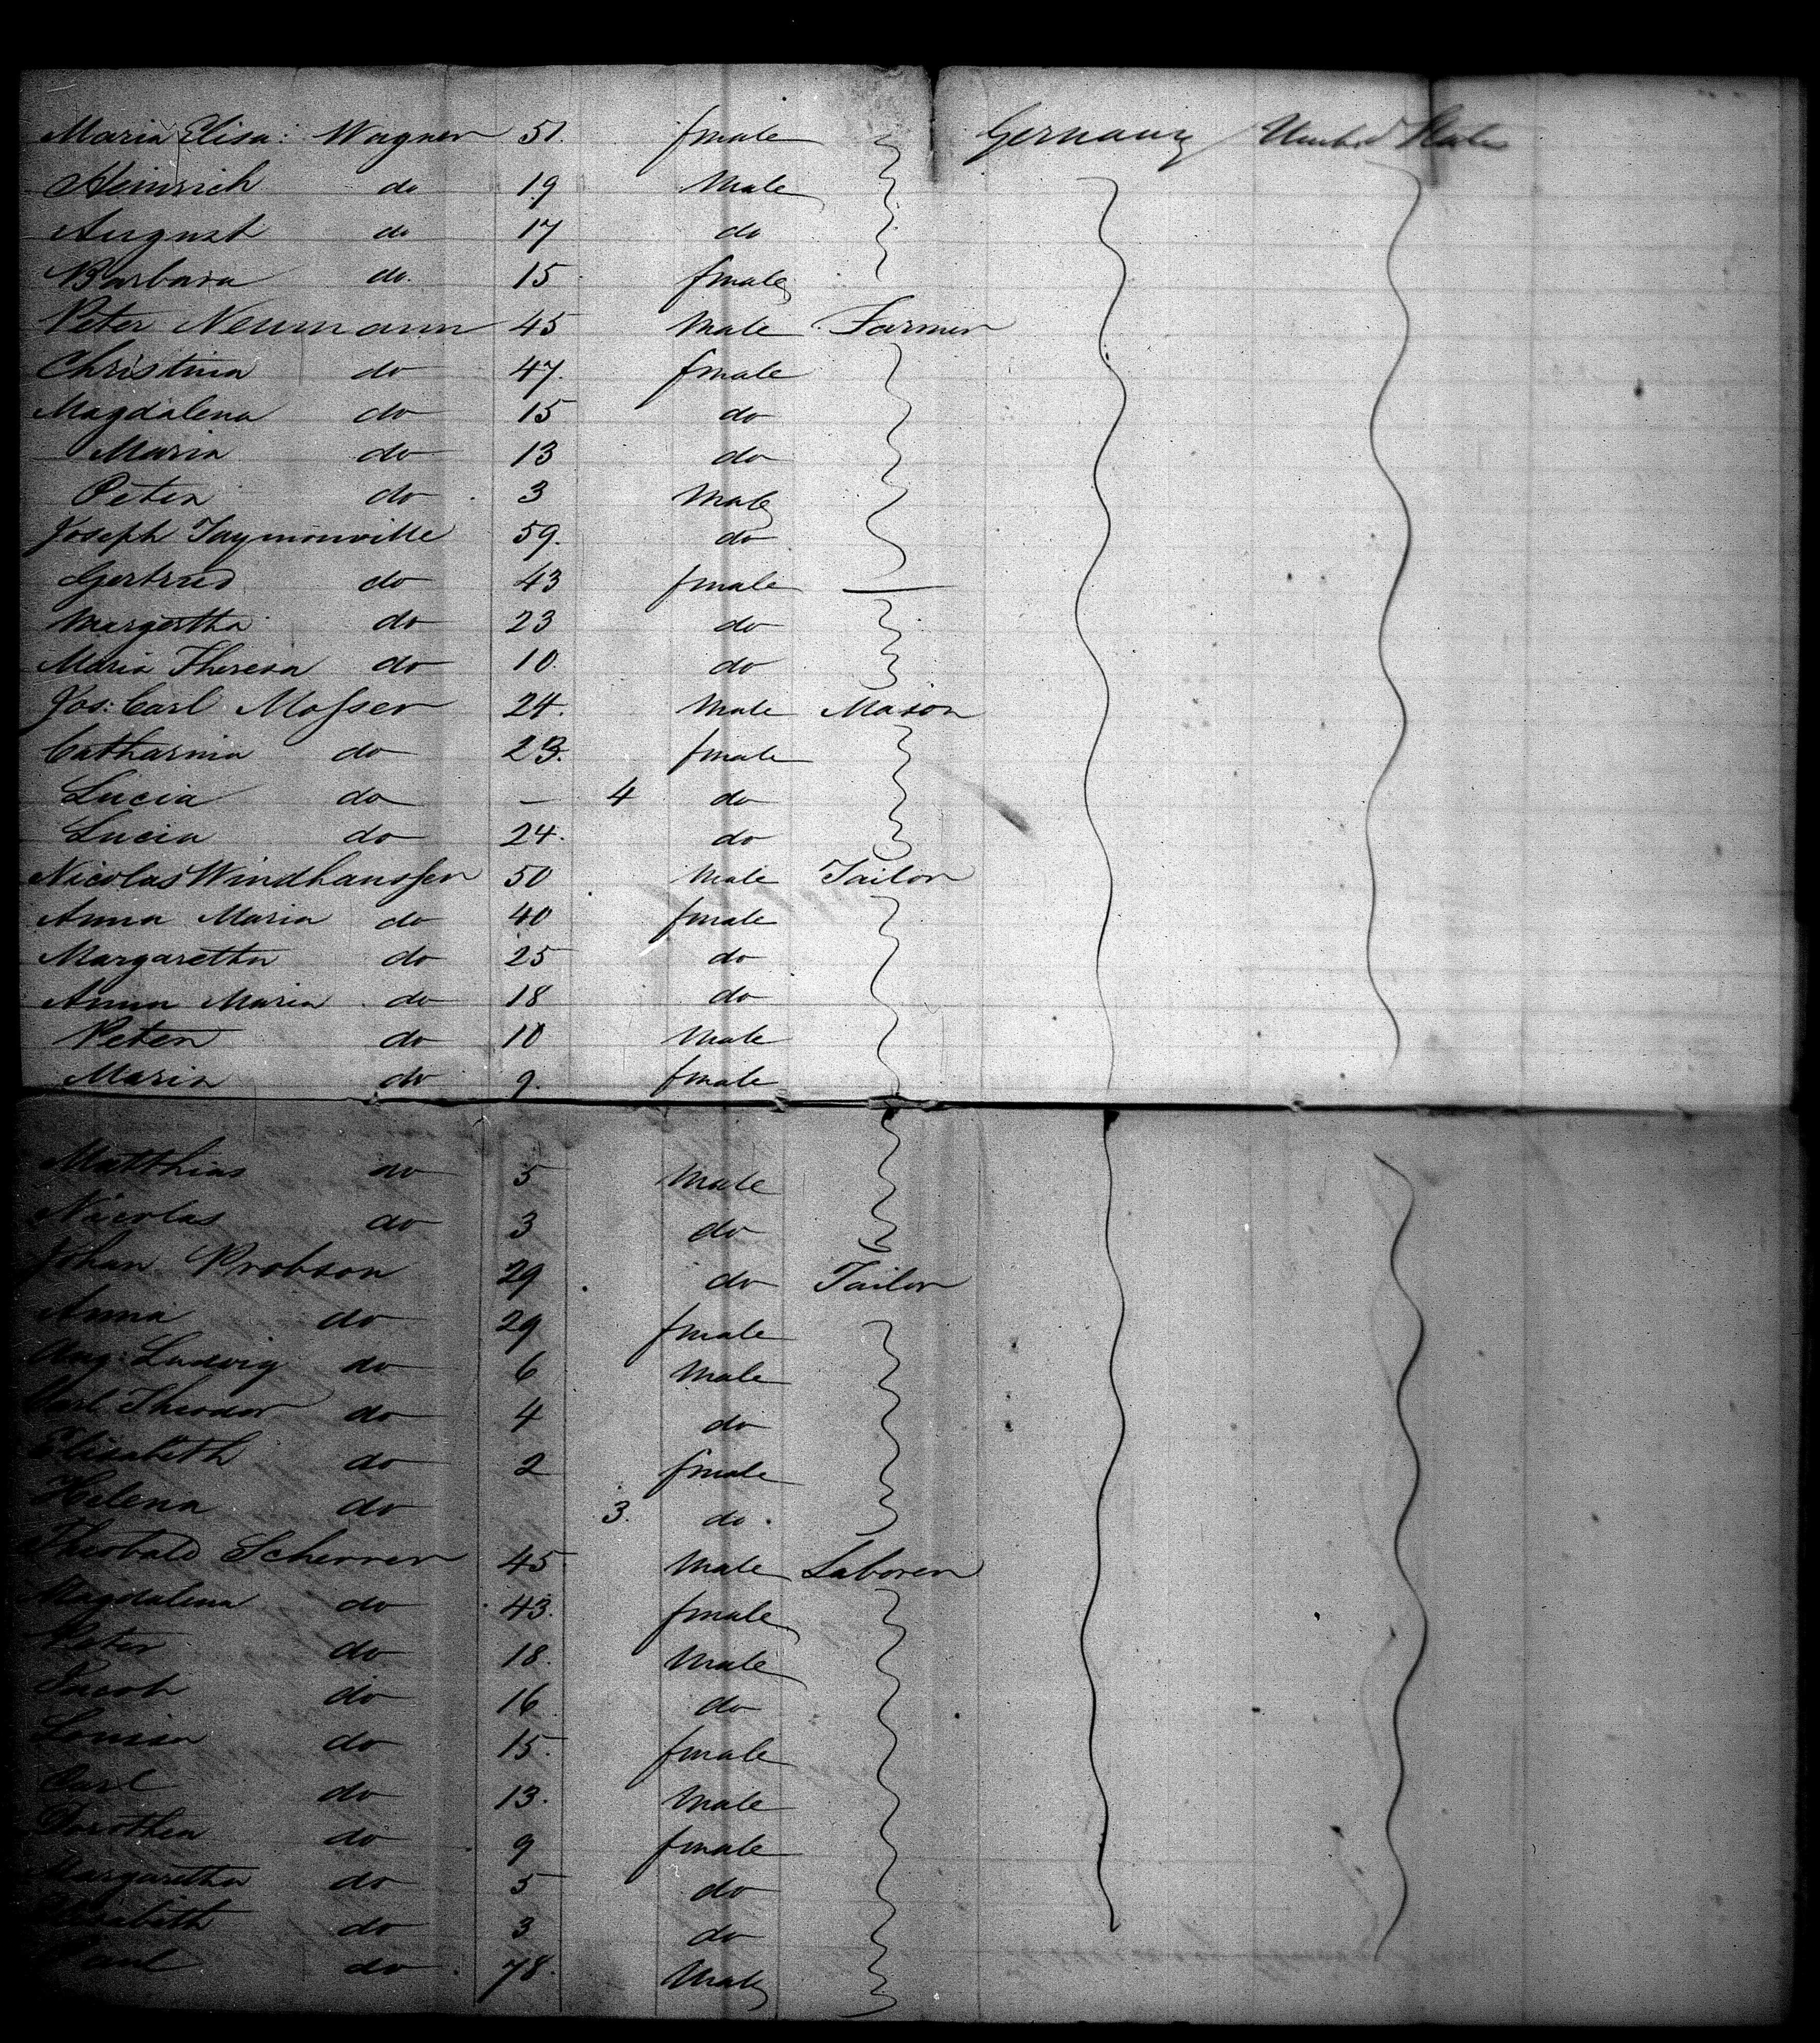 Maria Elisa: Wagner 51. fmale Germany United States
Heinrich do 19 Male
August do 17 do
Barbara do. 15 fmale
Peter Neumann 45 Male Farmer
Christina do 47. fmale
Magdalena do 15 do
Maria do 13 do
Peter do 3 Male
Joseph Taymonville 59. do
Gertrud do 43 fmale
Margertha do 23 do
Maria Theresa do 10 do
Jos: Carl Mosser 24. Male Mason
Catharina do 23. fmale
Lucia do — 4 do
Lucia do 24. do
Nicolas Windhaussen 50 Male Tailor
Anna Maria do 40 fmale
Margaretha do 25 do
Anna Maria do 18 do
Peter do 10 Male
Maria do 9. fmale
Matthias do 5 Male
Nicolas do 3 do
Johan Probson 29 do Tailor
Anna do 29 fmale
Aug: Ludwig do 6 Male
Carl Theodor do 4 do
Elisabeth do 2 fmale
Helena do 3. do
Theobald Scherrer 45 Male Laborer
Magdalena do 43. fmale
Peter do 18. Male
Jacob do 16 do
Louisa do 15. fmale
Carl do 13. Male
Dorothea do 9 fmale
Margaretha do 5 do
Elisabeth do 3 do
Paul do 78. Male